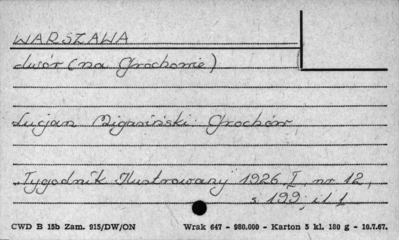 WARSZAWA
dwór (na Grochowie)
Lucjan Bigasiński: Grochów,
"Tygodnik Ilustrowany" 1926 I nr 12,
s 199; il 1
CWD B 15b Zam. 915/DW/ON Wrak 647 - 980.000 - Karton 5 kl. 180 g - 10.7.67.